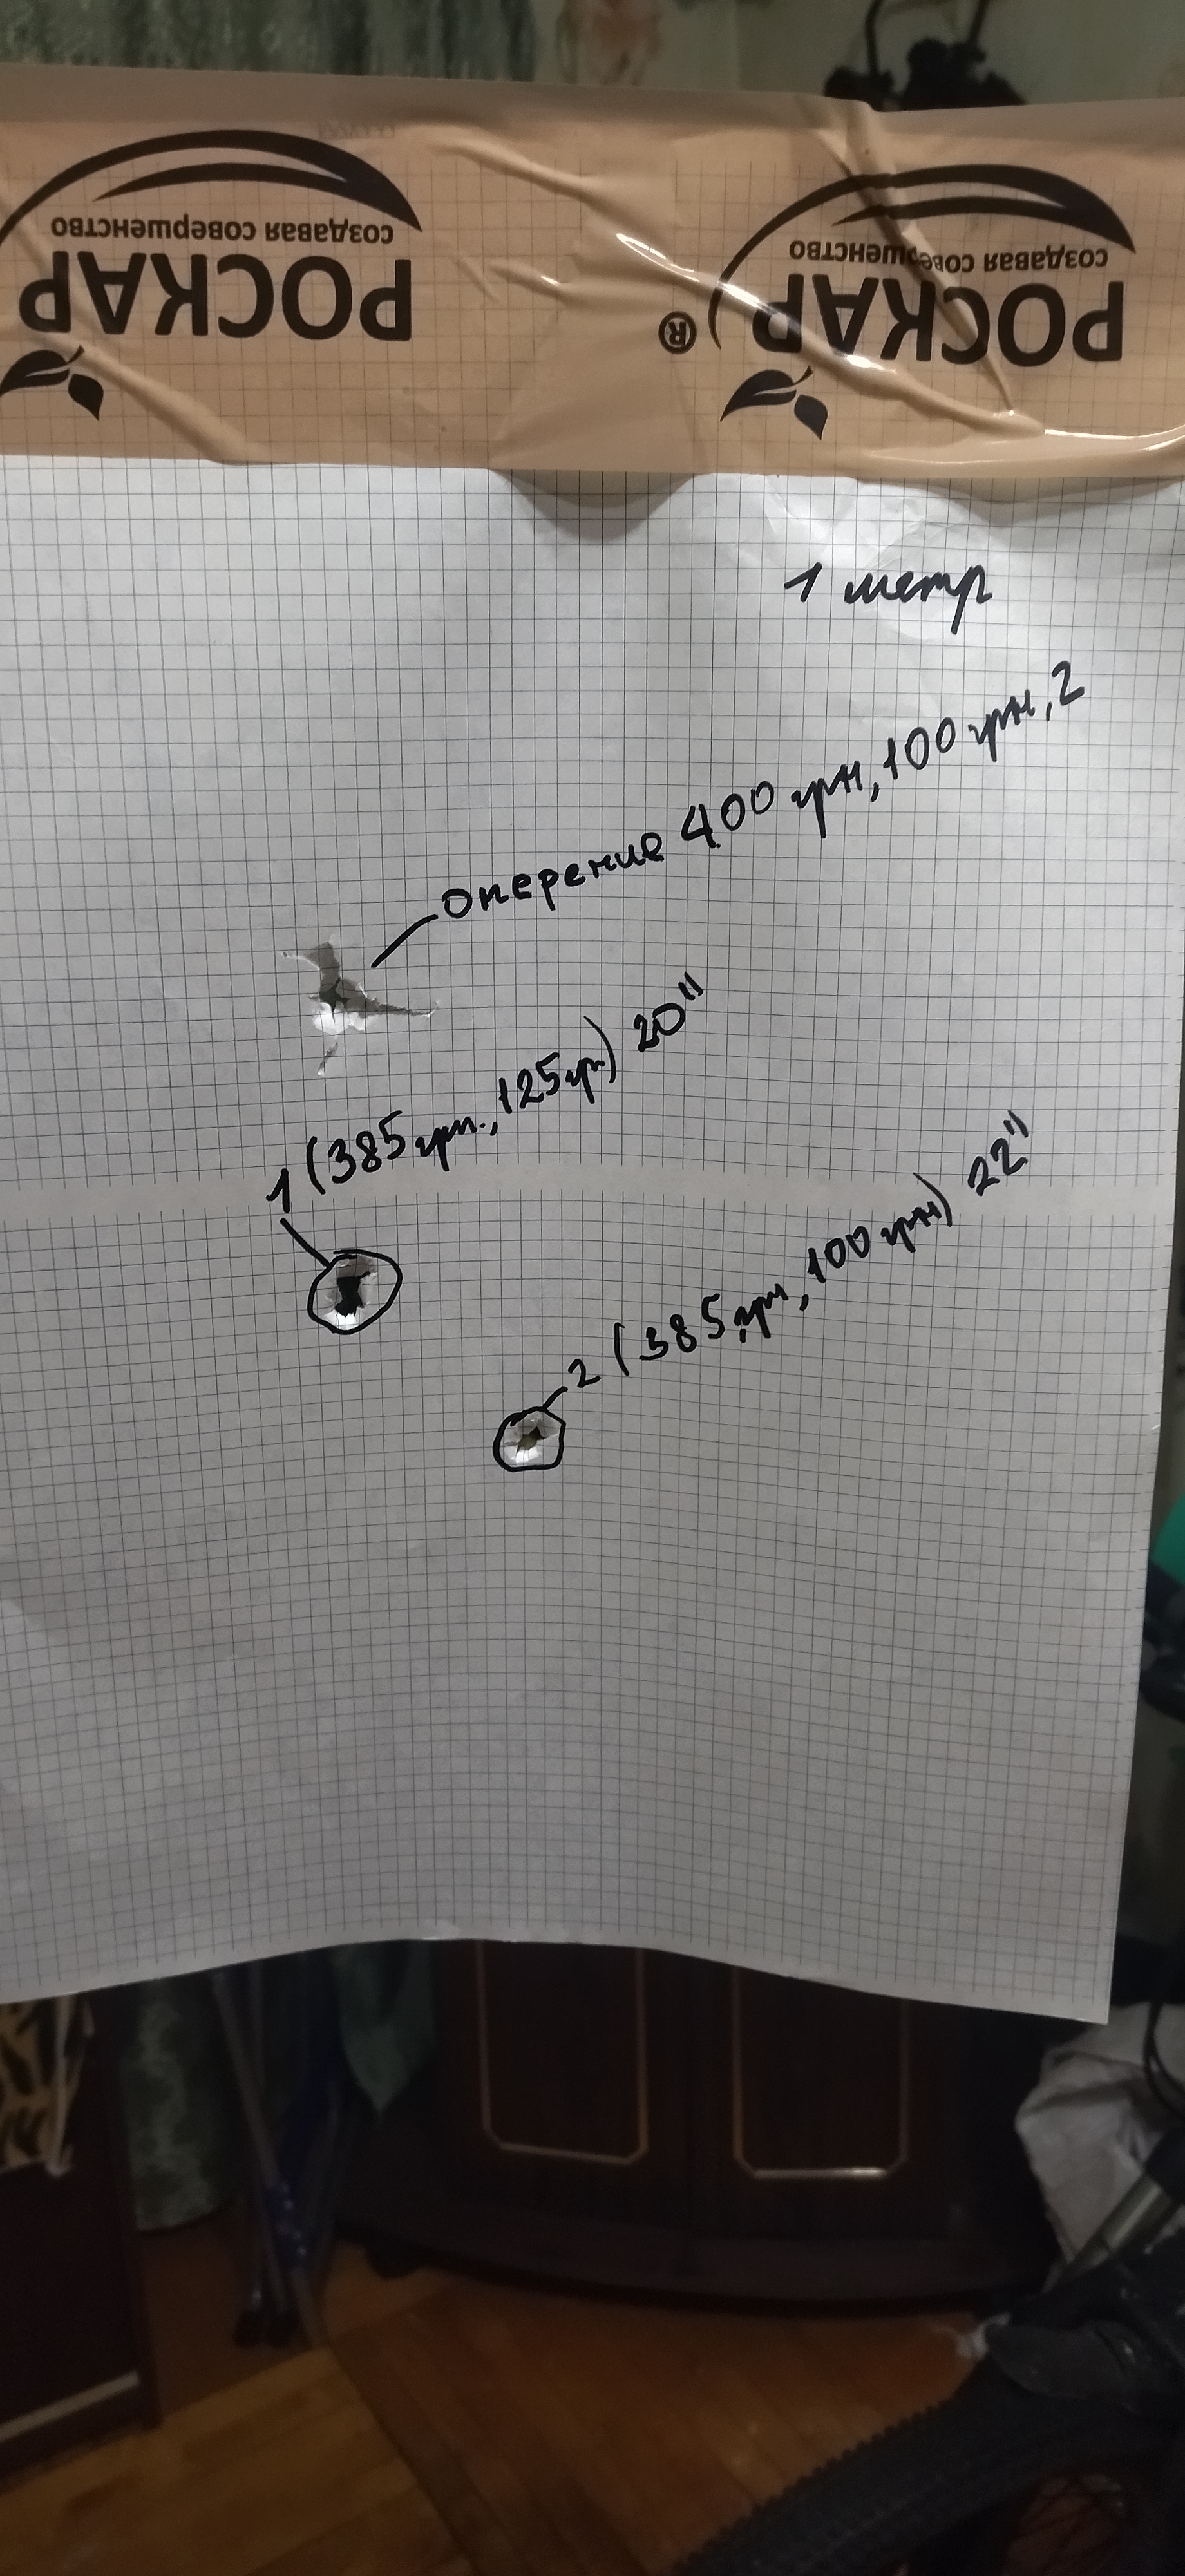 создавая совершенство
РОСКАР
создавая совершенство
РОСКАР®
1 метр
Оперение 400 грн, 100 грн, 2
1 (385 грн., 125 гр) 20"
2 (385 грн, 100 грн) 22"